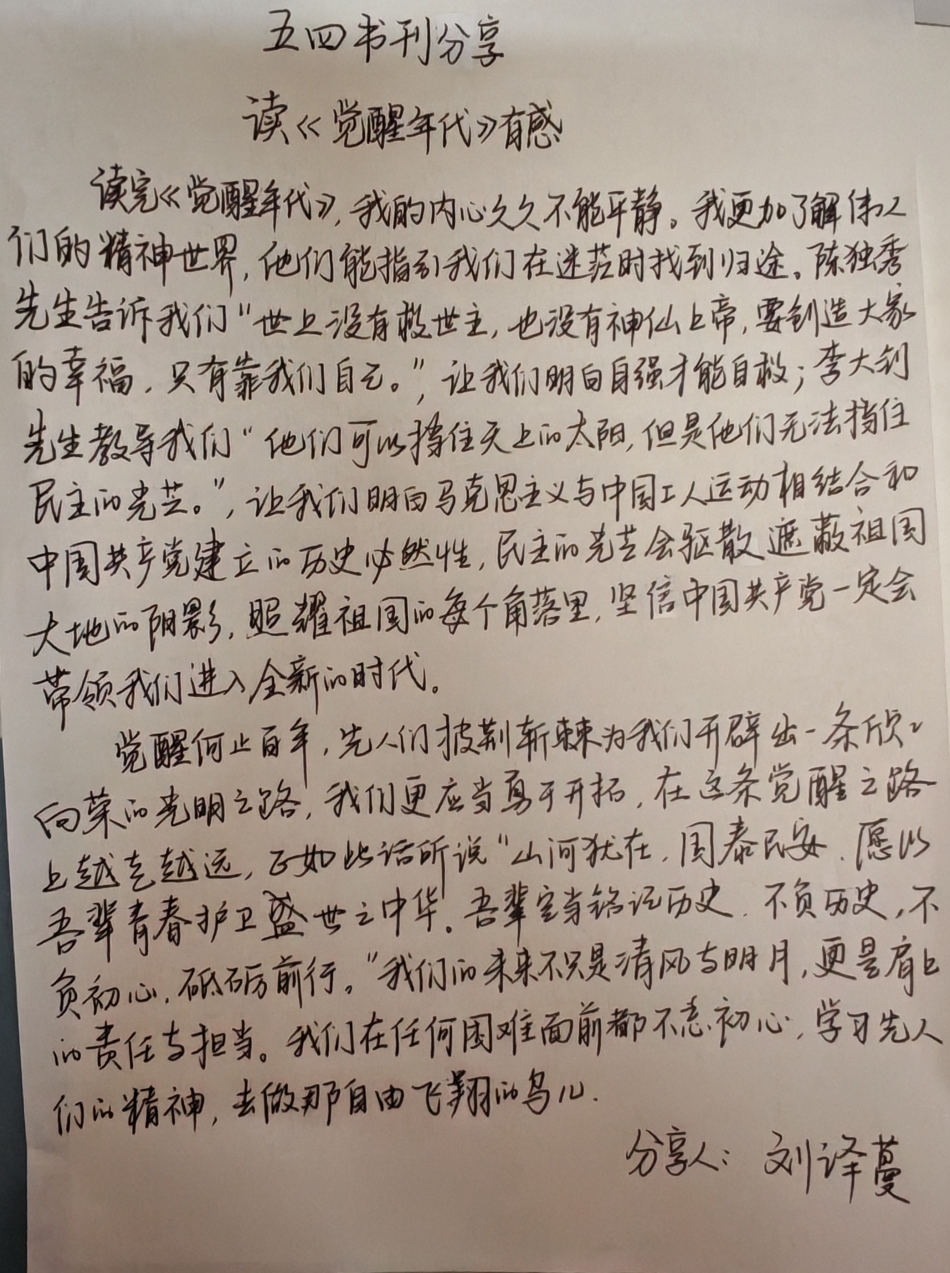 五四书刊分享
读《觉醒年代》有感
读完《觉醒年代》，我的内心久久不能平静。我更加了解伟人
们的精神世界，他们能指引我们在迷茫时找到归途。陈独秀
先生告诉我们“世上没有救世主，也没有神仙上帝，要创造大家
的幸福，只有靠我们自己。”，让我们明白自强才能自救；李大钊
先生教导我们“他们可以挡住天上的太阳，但是他们无法挡住
民主的光芒。”，让我们明白马克思主义与中国工人运动相结合和
中国共产党建立的历史必然性，民主的光芒会驱散遮蔽祖国
大地的阴影，照耀祖国的每个角落里，坚信中国共产党一定会
带领我们进入全新的时代。
觉醒何止百年，先人们披荆斩棘为我们开辟出一条欣欣
向荣的光明之路，我们更应当勇于开拓，在这条觉醒之路
上越走越远，正如此话所说“山河犹在，国泰民安，愿以
吾辈青春护卫盛世之中华。吾辈定当铭记历史，不负历史，不
负初心，砥砺前行。”我们的未来不只是清风与明月，更是肩上
的责任与担当。我们在任何困难面前都不忘初心，学习先人
们的精神，去做那自由飞翔的鸟儿.
分享人：刘译蔓